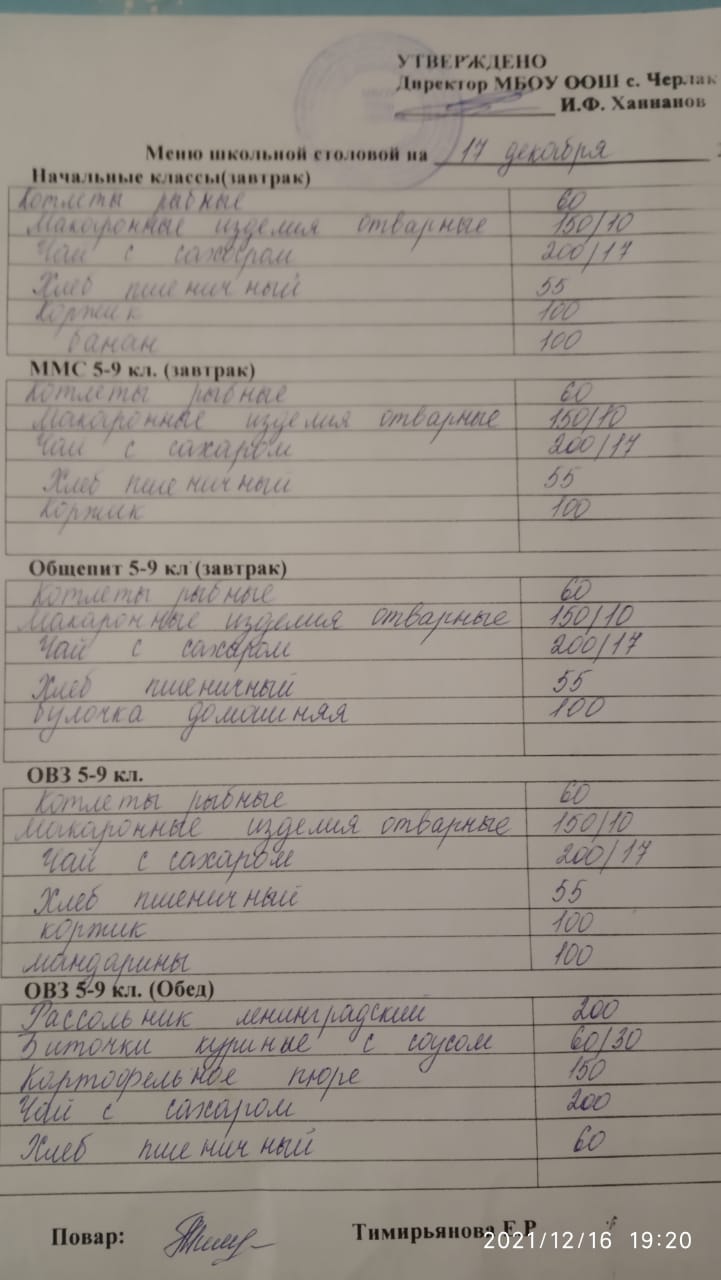 УТВЕРЖДЕНО
Директор МБОУ ООШ с. Черлак
И.Ф. Ханнанов
Меню школьной столовой на 17 декабря
Начальные классы(завтрак)
Котлеты рыбные 60
Макаронные изделия отварные 150/10
Чай с сахаром 200/17
Хлеб пшеничный 55
Коржик 100
Банан 100
ММС 5-9 кл. (завтрак)
Котлеты рыбные 60
Макаронные изделия отварные 150/10
Чай с сахаром 200/17
Хлеб пшеничный 55
Коржик 100
Общепит 5-9 кл (завтрак)
Котлеты рыбные 60
Макаронные изделия отварные 150/10
Чай с сахаром 200/17
Хлеб пшеничный 55
Булочка домашняя 100
ОВЗ 5-9 кл.
Котлеты рыбные 60
Макаронные изделия отварные 150/10
Чай с сахаром 200/17
Хлеб пшеничный 55
коржик 100
мандарины 100
ОВЗ 5-9 кл. (Обед)
Рассольник ленинградский 200
Биточки куриные с соусом 60/30
Картофельное пюре 150
Чай с сахаром 200
Хлеб пшеничный 60
Повар: Тимирьянова Е.Р
2021/12/16 19:20